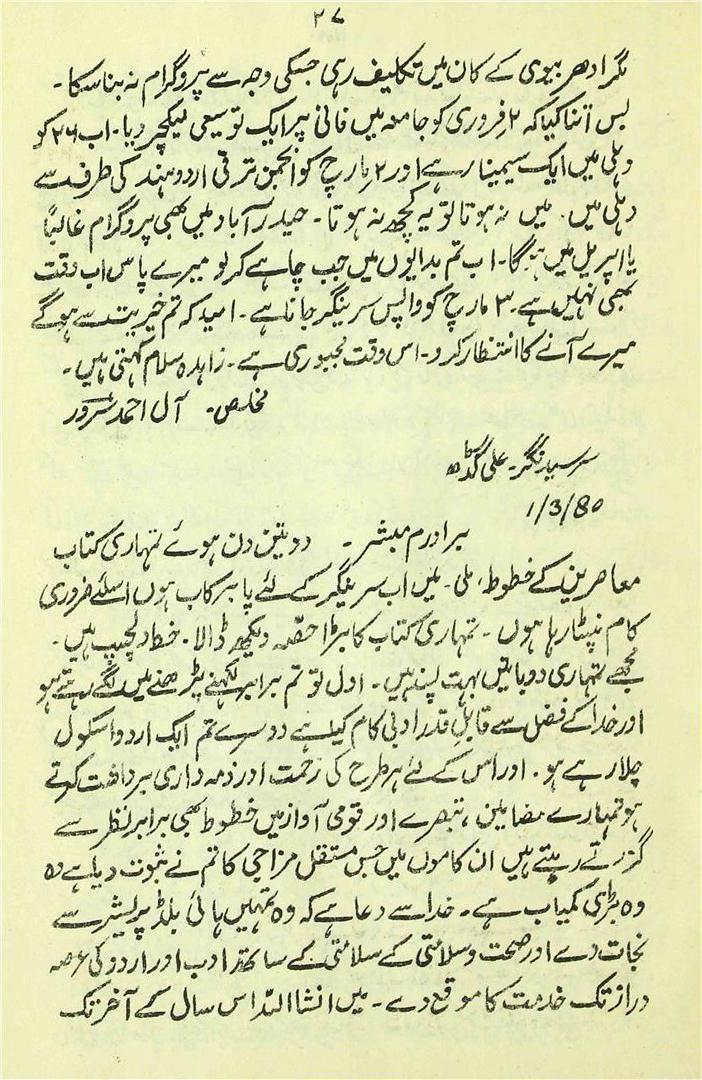 ۲۷
مگر ادھر بیوی کے کان میں تکلیف رہی جسکی وجہ سے پروگرام نہ بنا سکا۔
بس اتنا کیا کہ ۲ فروری کو جامعہ میں فانی پر ایک توسیعی لیکچر دیا۔ اب ۲۶ کو
دہلی میں ایک سیمینار ہے اور ۲ مارچ کو انجمن ترقی اردو ہند کی طرف سے
دہلی میں۔ میں نہ ہوتا تو یہ کچھ نہ ہوتا۔ حیدرآباد میں بھی پروگرام غالباً
یا اپریل میں ہوگا۔ اب تم بدایوں میں جب چاہے کر لو میرے پاس اب وقت
بھی نہیں ہے۔ ۳ مارچ کو واپس سرینگر جانا ہے۔ امید کہ تم خیریت سے ہوگے
میرے آنے کا انتظار کرو۔ اس وقت مجبوری ہے۔ زاہدہ سلام کہتی ہیں۔
مخلص۔ آل احمد سرور
سرسید نگر۔ علی گڑھ
1/3/80
برادرم مبشر۔ دو تین دن ہوئے تمہاری کتاب
معاصرین کے خطوط، ملی۔ میں اب سرینگر کے لئے پا برکاب ہوں اسلئے ضروری
کام نپٹا رہا ہوں۔ تمہاری کتاب کا بڑا حصّہ دیکھ ڈالا۔ خط دلچسپ ہیں۔
مجھے تمہاری دو باتیں بہت پسند ہیں۔ اول تو تم برابر لکھنے پڑھنے میں لگے رہتے ہو
اور خدا کے فضل سے قابلِ قدر ادبی کام کیا ہے دوسرے تم ایک اردو اسکول
چلا رہے ہو۔ اور اس کے لئے ہر طرح کی زحمت اور ذمہ داری برداشت کرتے
ہو تمہارے مضامین، تبصرے اور قومی آواز میں خطوط بھی برابر نظر سے
گزرتے رہتے ہیں ان کاموں میں جس مستقل مزاجی کا تم نے ثبوت دیا ہے وہ
وہ بڑی کمیاب ہے۔ خدا سے دعا ہے کہ وہ تمہیں ہائی بلڈ پریشر سے
نجات دے اور صحت و سلامتی کے سلامتی کے ساتھ ادب اور اردو کی عرصہ
دراز تک خدمت کا موقع دے۔ میں انشااللہ اس سال کے آخر تک